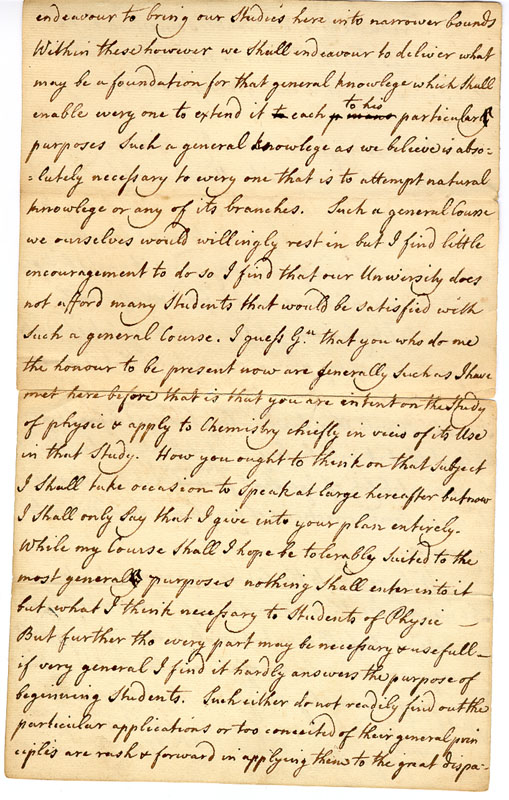 endeavour to bring our Studies here into narrower bounds
Within these however we Shall endeavour to deliver what
may be a foundation for that general knowlege which shall
enable every one to extend it to each to his particular
purposes Such a general knowlege as we believe is abso-
-lutely necessary to every one that is to attempt natural
knowlege or any of its branches. Such a general Course
we ourselves would willingly rest in but I find little
encouragement to do so I find that our University does
not afford many Students that would be satisfied with
Such a general Course. I guess G.n that you who do me
the honour to be present now are generally Such as I have
met here before that is that you are intent on the Study
of physic & apply to Chemistry chiefly in view of its Use
in that Study. How you ought to think on that Subject
I Shall take occasion to Speak at large hereafter but now
I Shall only Say that I give into your plan entirely.
While my Course Shall I hope be tolerably Suited to the
most general purposes nothing Shall enter into it
but what I think necessary to Students of Physic —
But further tho every part may be necessary & usefull —
if very general I find it hardly answers the purpose of
beginning Students. Such either do not readily find out the
particular applications or too conceited of their general prin
ciples are rash & forward in applying them to the great dispa-